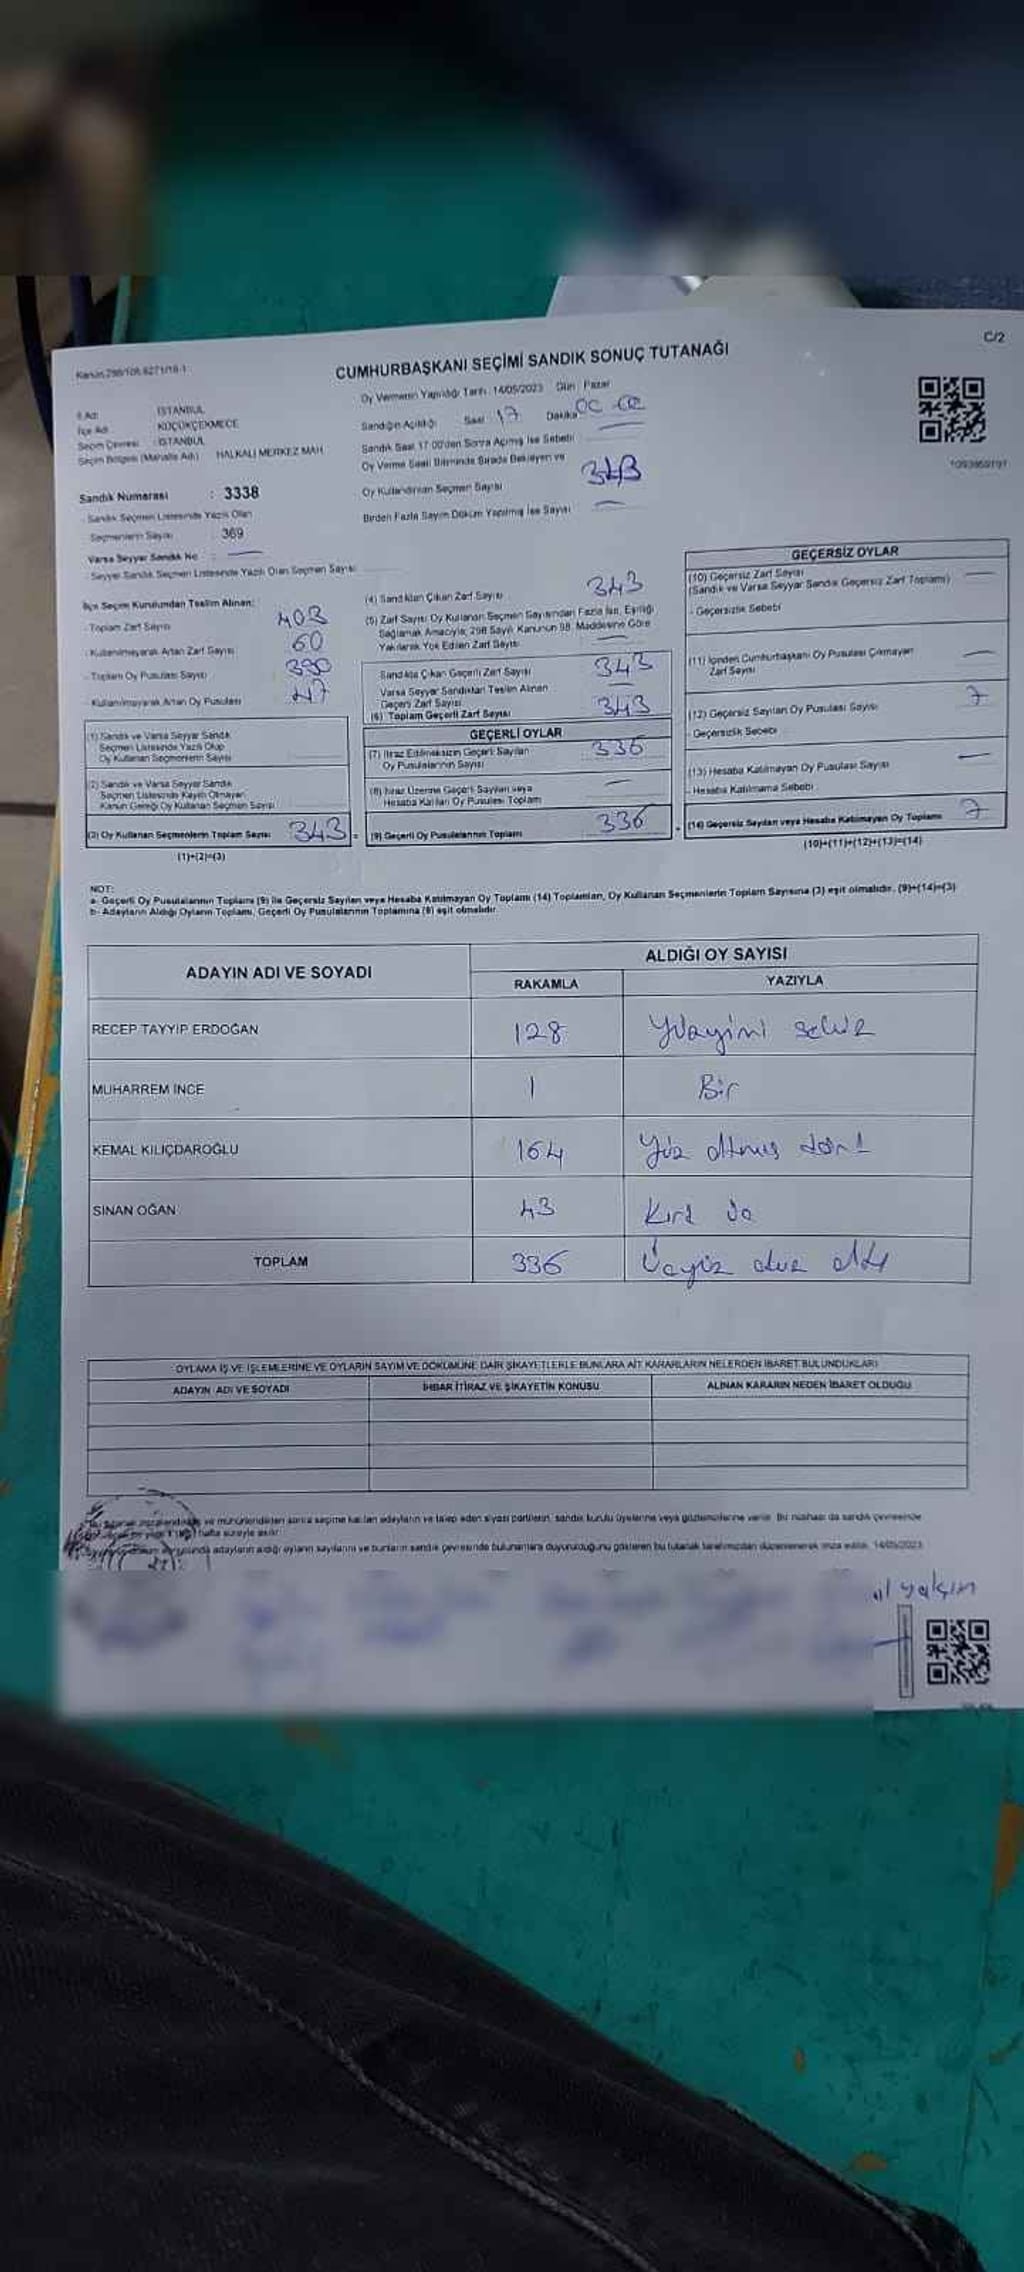 C/2
CUMHURBAŞKANI SEÇİMİ SANDIK SONUÇ TUTANAĞI
Oy Vermenin Yapıldığı Tarih : 14/05/2023 Gün : Pazar
İl Adı : İSTANBUL
İlçe Adı : KÜÇÜKÇEKMECE
Seçim Çevresi : İSTANBUL
Seçim Bölgesi (Mahalle Adı) : HALKALI MERKEZ MAH
Sandık Numarası : 3338
- Sandık Seçmen Listesinde Yazılı Olan
Seçmenlerin Sayısı : 369
Varsa Seyyar Sandık No :
- Seyyar Sandık Seçmen Listesinde Yazılı Olan Seçmen Sayısı
Sandığın Açıldığı : Saat : 17 Dakika
Sandık Saat 17:00'den Sonra Açılmış İse Sebebi
Oy Verme Saati Bitiminde Sırada Bekleyen ve
Oy Kullandırılan Seçmen Sayısı 343
Birden Fazla Sayım Döküm Yapılmış İse Sayısı
İlçe Seçim Kurulundan Teslim Alınan:
- Toplam Zarf Sayısı 403
- Kullanılmayarak Artan Zarf Sayısı 60
- Toplam Oy Pusulası Sayısı 390
- Kullanılmayarak Artan Oy Pusulası 47
(1) Sandık ve Varsa Seyyar Sandık
Seçmen Listesinde Yazılı Olup
Oy Kullanan Seçmenlerin Sayısı
(2) Sandık ve Varsa Seyyar Sandık
Seçmen Listesinde Kayıtlı Olmayan
Kanun Gereği Oy Kullanan Seçmen Sayısı
(3) Oy Kullanan Seçmenlerin Toplam Sayısı 343 =
(1)+(2)=(3)
(4) Sandıktan Çıkan Zarf Sayısı 343
(5) Zarf Sayısı Oy Kullanan Seçmen Sayısından Fazla İse, Eşitliği
Sağlamak Amacıyla; 298 Sayılı Kanunun 98. Maddesine Göre
Yakılarak Yok Edilen Zarf Sayısı
Sandıkta Çıkan Geçerli Zarf Sayısı 343
Varsa Seyyar Sandıktan Teslim Alınan
Geçerli Zarf Sayısı
(6) Toplam Geçerli Zarf Sayısı 343
GEÇERLİ OYLAR
(7) İtiraz Edilmeksizin Geçerli Sayılan
Oy Pusulalarının Sayısı 336
(8) İtiraz Üzerine Geçerli Sayılan veya
Hesaba Katılan Oy Pusulası Toplamı
(9) Geçerli Oy Pusulalarının Toplamı 336
GEÇERSİZ OYLAR
(10) Geçersiz Zarf Sayısı
(Sandık ve Varsa Seyyar Sandık Geçersiz Zarf Toplamı)
- Geçersizlik Sebebi
(11) İçinden Cumhurbaşkanı Oy Pusulası Çıkmayan
Zarf Sayısı
(12) Geçersiz Sayılan Oy Pusulası Sayısı 7
- Geçersizlik Sebebi
(13) Hesaba Katılmayan Oy Pusulası Sayısı
- Hesaba Katılmama Sebebi
(14) Geçersiz Sayılan veya Hesaba Katılmayan Oy Toplamı 7
(10)+(11)+(12)+(13)=(14)
NOT:
a- Geçerli Oy Pusulalarının Toplamı (9) ile Geçersiz Sayılan veya Hesaba Katılmayan Oy Toplamı (14) Toplamları, Oy Kullanan Seçmenlerin Toplam Sayısına (3) eşit olmalıdır. (9)+(14)=(3)
b- Adayların Aldığı Oyların Toplamı, Geçerli Oy Pusulalarının Toplamına (9) eşit olmalıdır.
ADAYIN ADI VE SOYADI
ALDIĞI OY SAYISI
RAKAMLA YAZIYLA
RECEP TAYYİP ERDOĞAN 128 Yüzyirmi sekiz
MUHARREM İNCE 1 Bir
KEMAL KILIÇDAROĞLU 164 Yüz altmış dört
SİNAN OĞAN 43 Kırk üç
TOPLAM 336 Üçyüz otuz altı
OYLAMA İŞ VE İŞLEMLERİNE VE OYLARIN SAYIM VE DÖKÜMÜNE DAİR ŞİKAYETLERLE BUNLARA AİT KARARLARIN NELERDEN İBARET BULUNDUKLARI
ADAYIN ADI VE SOYADI İHBAR İTİRAZ VE ŞİKAYETİN KONUSU ALINAN KARARIN NEDEN İBARET OLDUĞU
ve mühürlendikten sonra seçime katılan adayların ve talep eden siyasi partilerin, sandık kurulu üyelerine veya gözlemcilerine verilir. Bir nüshası da sandık çevresinde
hafta süreyle asılır.
adayların aldığı oyların sayılarını ve bunların sandık çevresinde bulunanlara duyurulduğunu gösteren bu tutanak tarafımızdan düzenlenerek imza edildi. 14/05/2023
yalçın